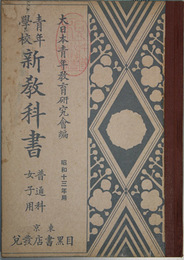 大日本青年教育研究會編
青年學校
新教科書
普通科
女子用
昭和十三年用
東京
目黒書店發兌